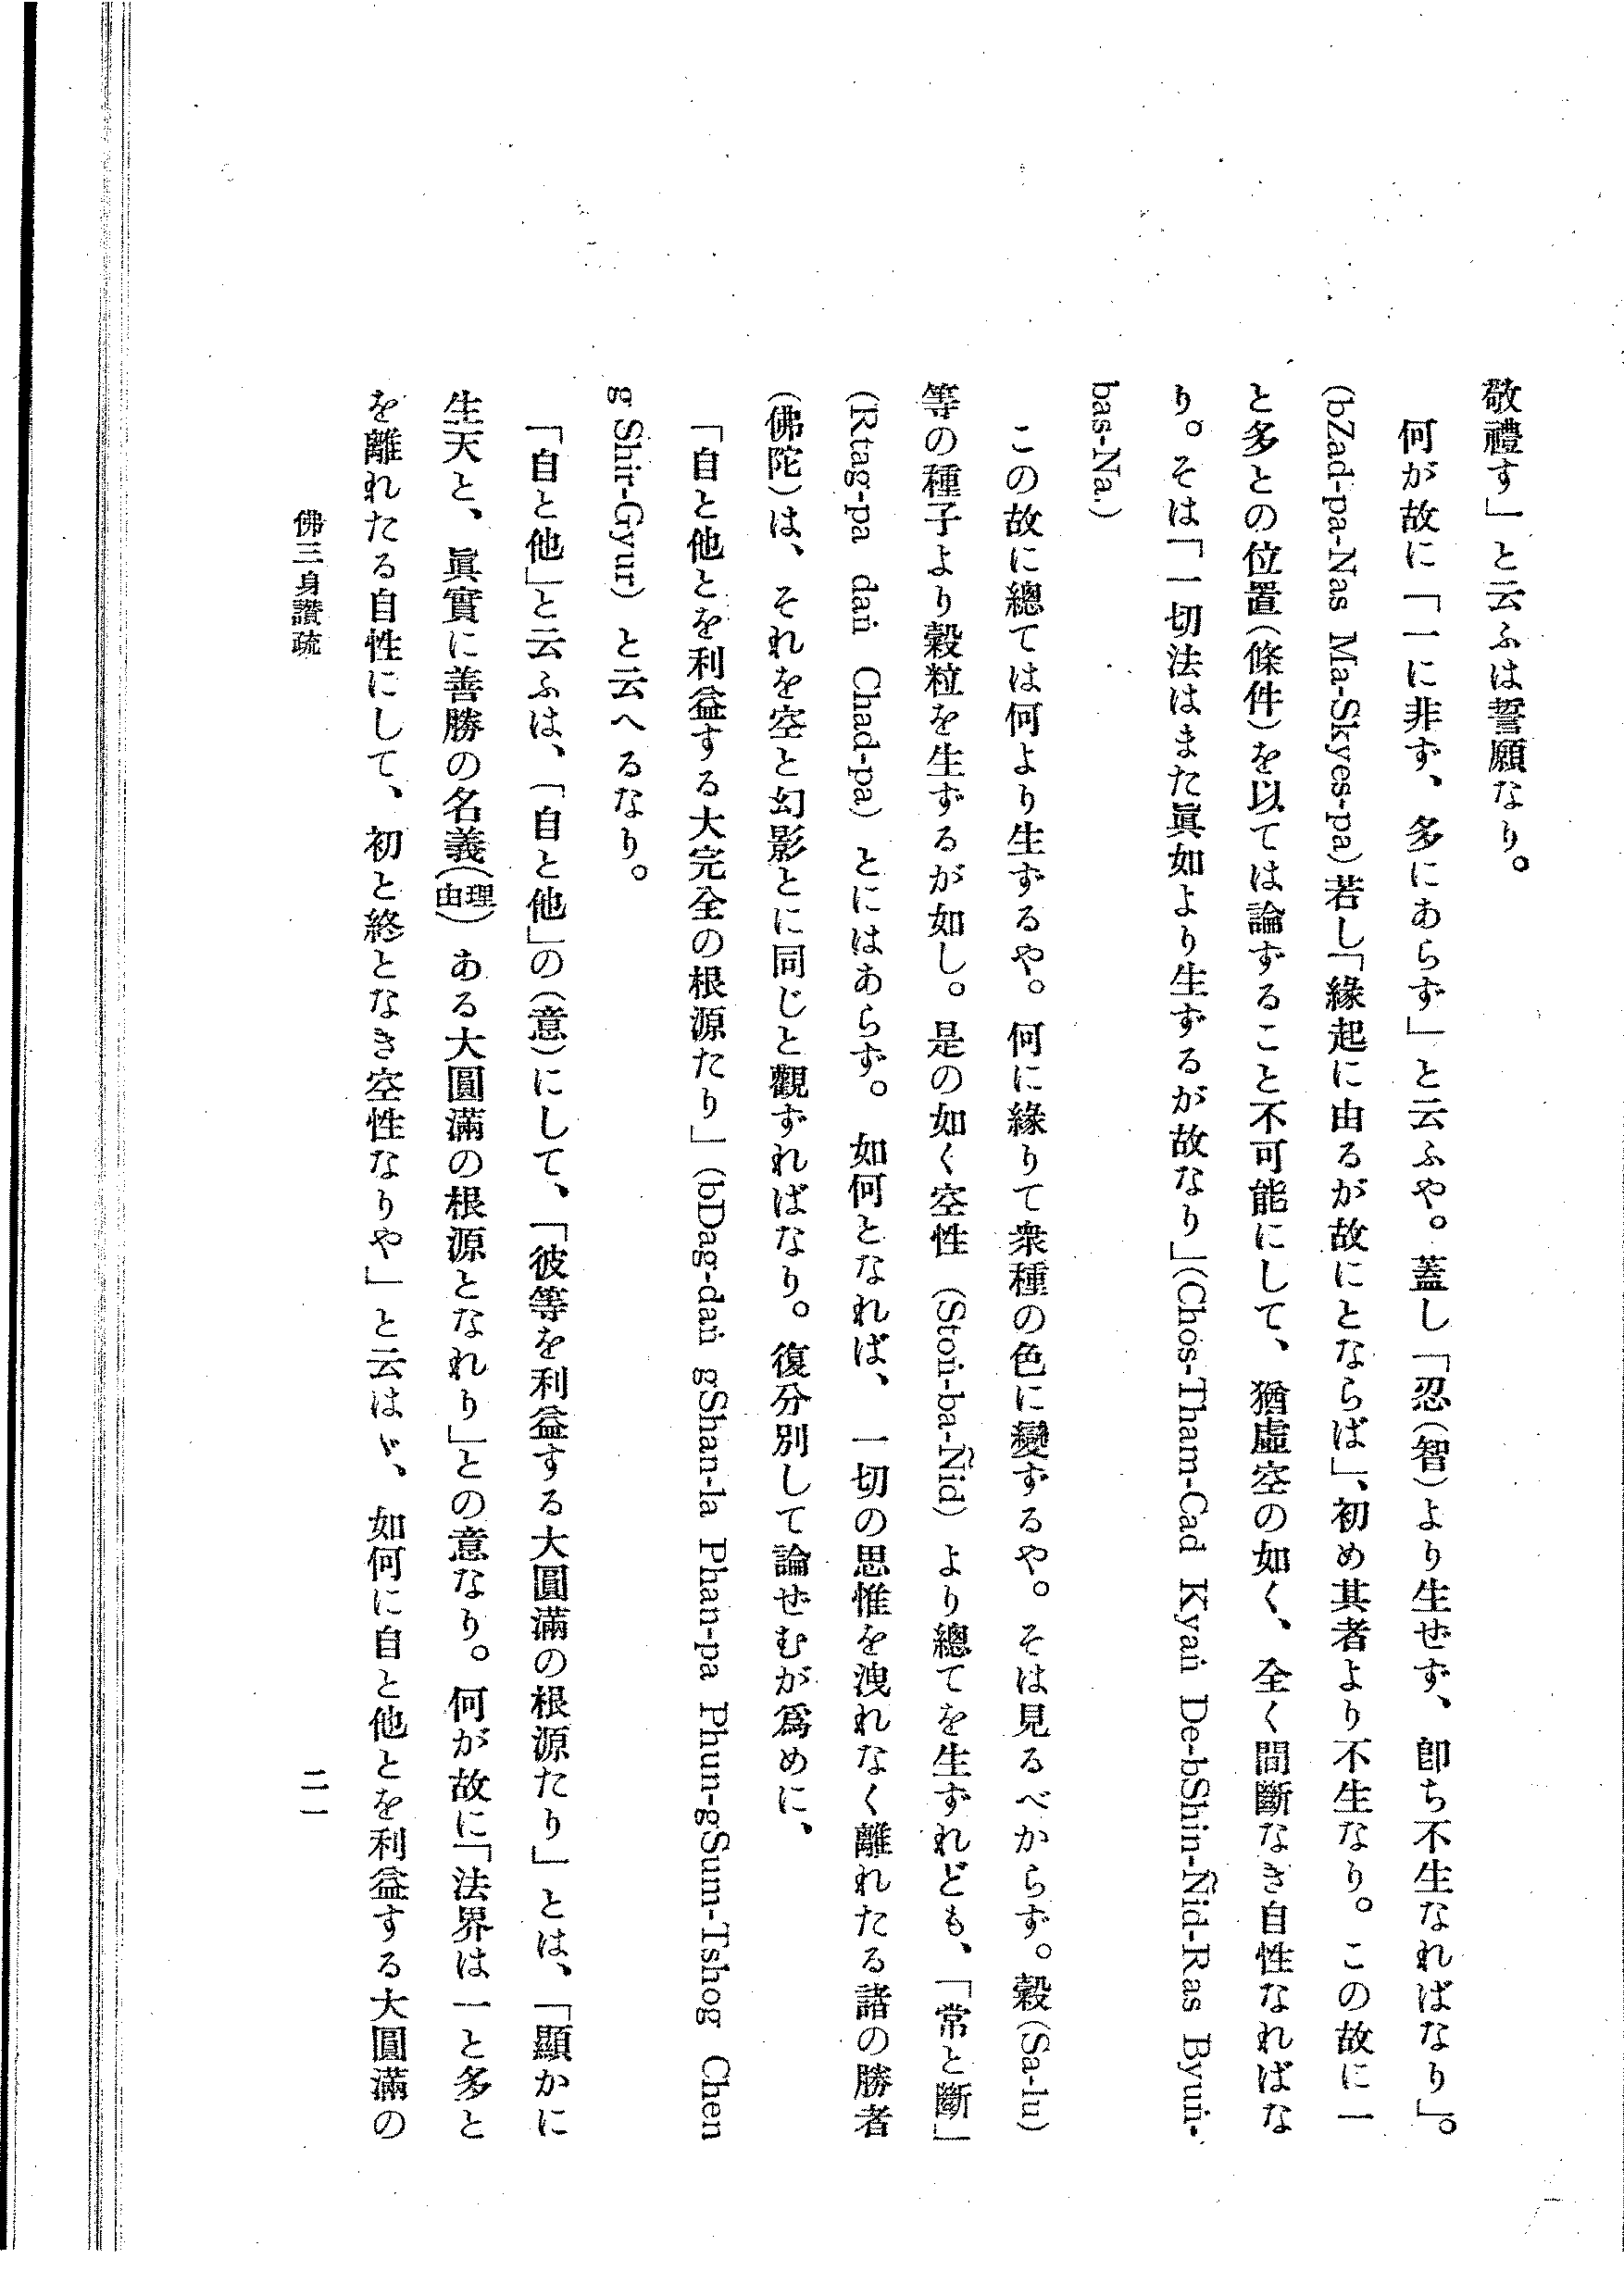 敬禮す」と云ふは誓願なり。
何が故に「一に非ず、多にあらず」と云ふや。蓋し「忍(智)より生ぜず、卽ち不生なればなり」。
(bZad-pa-Nas Ma-Skyes-pa)若し「緣起に由るが故にとならば」、初め其者より不生なり。この故に一
と多との位置(條件)を以ては論ずること不可能にして、猶虛空の如く、全く間斷なき自性なればな
り。そは「一切法はまた眞如より生ずるが故なり」(Chos-Tham-Cad Kyaṅ De-bShin-Ñid-Ras Byuṅ-
bas-Na.)
この故に總ては何より生ずるや。何に緣りて衆種の色に變ずるや。そは見るべからず。穀(Sa-lu)
等の種子より穀粒を生ずるが如し。是の如く空性 (Stoṅ-ba-Ñid) より總てを生ずれども、「常と斷」
(Rtag-pa daṅ Chad-pa) とにはあらず。如何となれば、一切の思惟を洩れなく離れたる諸の勝者
(佛陀)は、それを空と幻影とに同じと觀ずればなり。復分別して論ぜむが爲めに、
「自と他とを利益する大完全の根源たり」(bDag-daṅ gShan-la Phan-pa Phun-gSum-Tshog Chen
g Shir-Gyur) と云へるなり。
「自と他」と云ふは、「自と他」の(意)にして、「彼等を利益する大圓滿の根源たり」とは、「顯かに
生天と、眞實に善勝の名義(理由) ある大圓滿の根源となれり」との意なり。何が故に「法界は一と多と
を離れたる自性にして、初と終となき空性なりや」と云はゞ、如何に自と他とを利益する大圓滿の
佛三身讃疏
二一